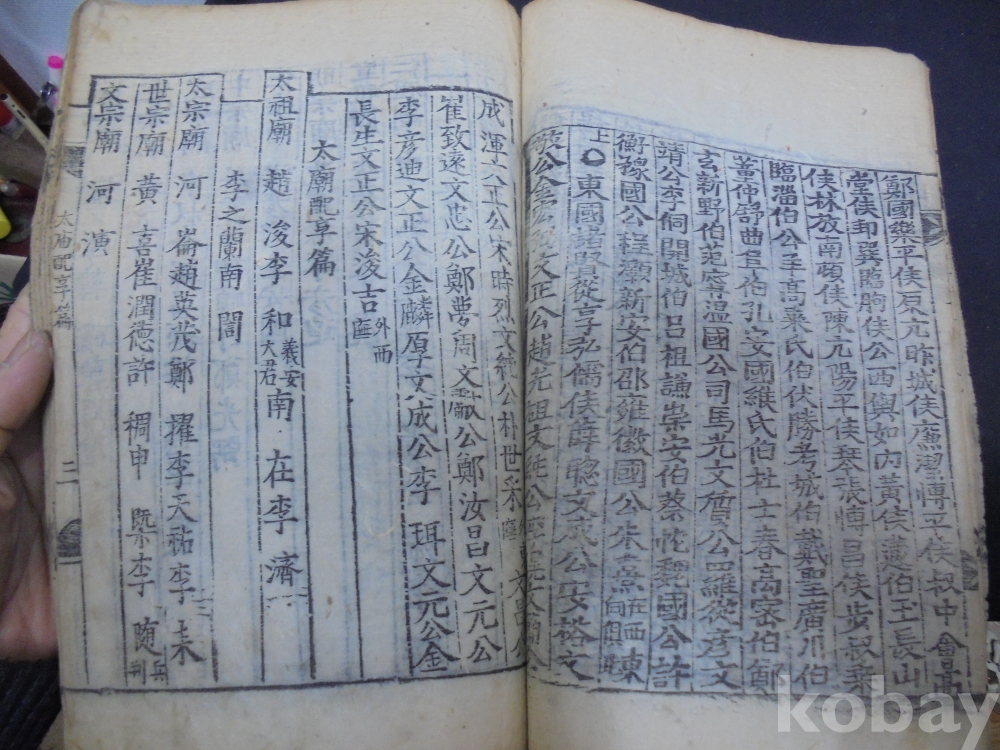 鄭國樂平侯原亢昨城侯廉潔博平侯叔仲會高
堂侯邽巽臨朐侯公西輿如內黃侯蘧伯玉長山
侯林放南頓侯陳亢陽平侯琴張博昌侯步叔乘
臨淄伯公羊高乘氏伯伏勝考城伯戴聖廣川伯
董仲舒曲阜伯孔安國維氏伯杜士春高密伯鄭
玄新野伯范甯溫國公司馬光文質公羅從彥文
靖公李侗開城伯呂祖謙崇安伯蔡忱魏國公許
衡豫國公程顥新安伯邵雍徽國公朱熹在西
上○東國諸賢從享弘儒侯薛聦文成公安裕文
敬公金宏弼文正公趙光祖文純公
成渾文正公宋時烈文純公朴世采
崔致遠文忠公鄭夢周文獻公鄭汝昌文元公
李彥迪文正公金麟厚文成公李珥文元公金
長生文正公宋浚吉外西廡
太廟配享篇
太祖廟 趙浚李和義安大君南在李濟
李之蘭南誾
太宗廟 河崙趙英茂鄭擢李天祐李來
世宗廟 黃喜崔潤德許稠申槩李隨
文宗廟 河演
太庙配享篇 二
kobay